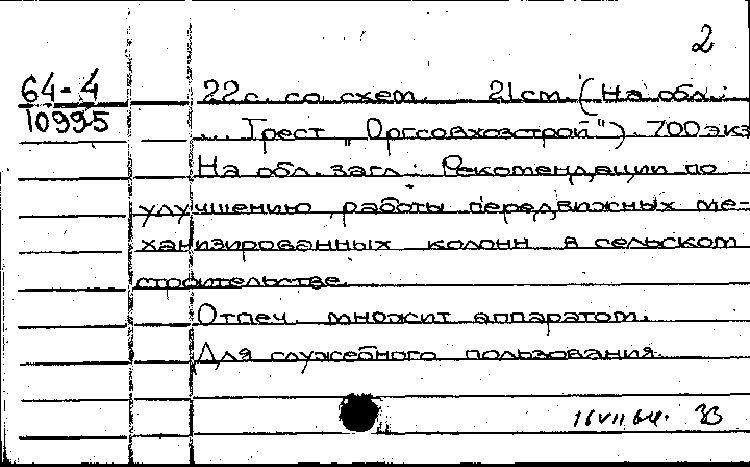 2
64-4 22с. со схем. 21см. (На обл.:
10995 ... Трест „Оргсовхозстрой"). 700 экз
На обл. загл.: Рекомендации по
улучшению работы передвижных ме-
ханизированных колонн в сельском
строительстве.
Отпеч. множит. аппаратом.
Для служебного пользования.
16 VII 64.